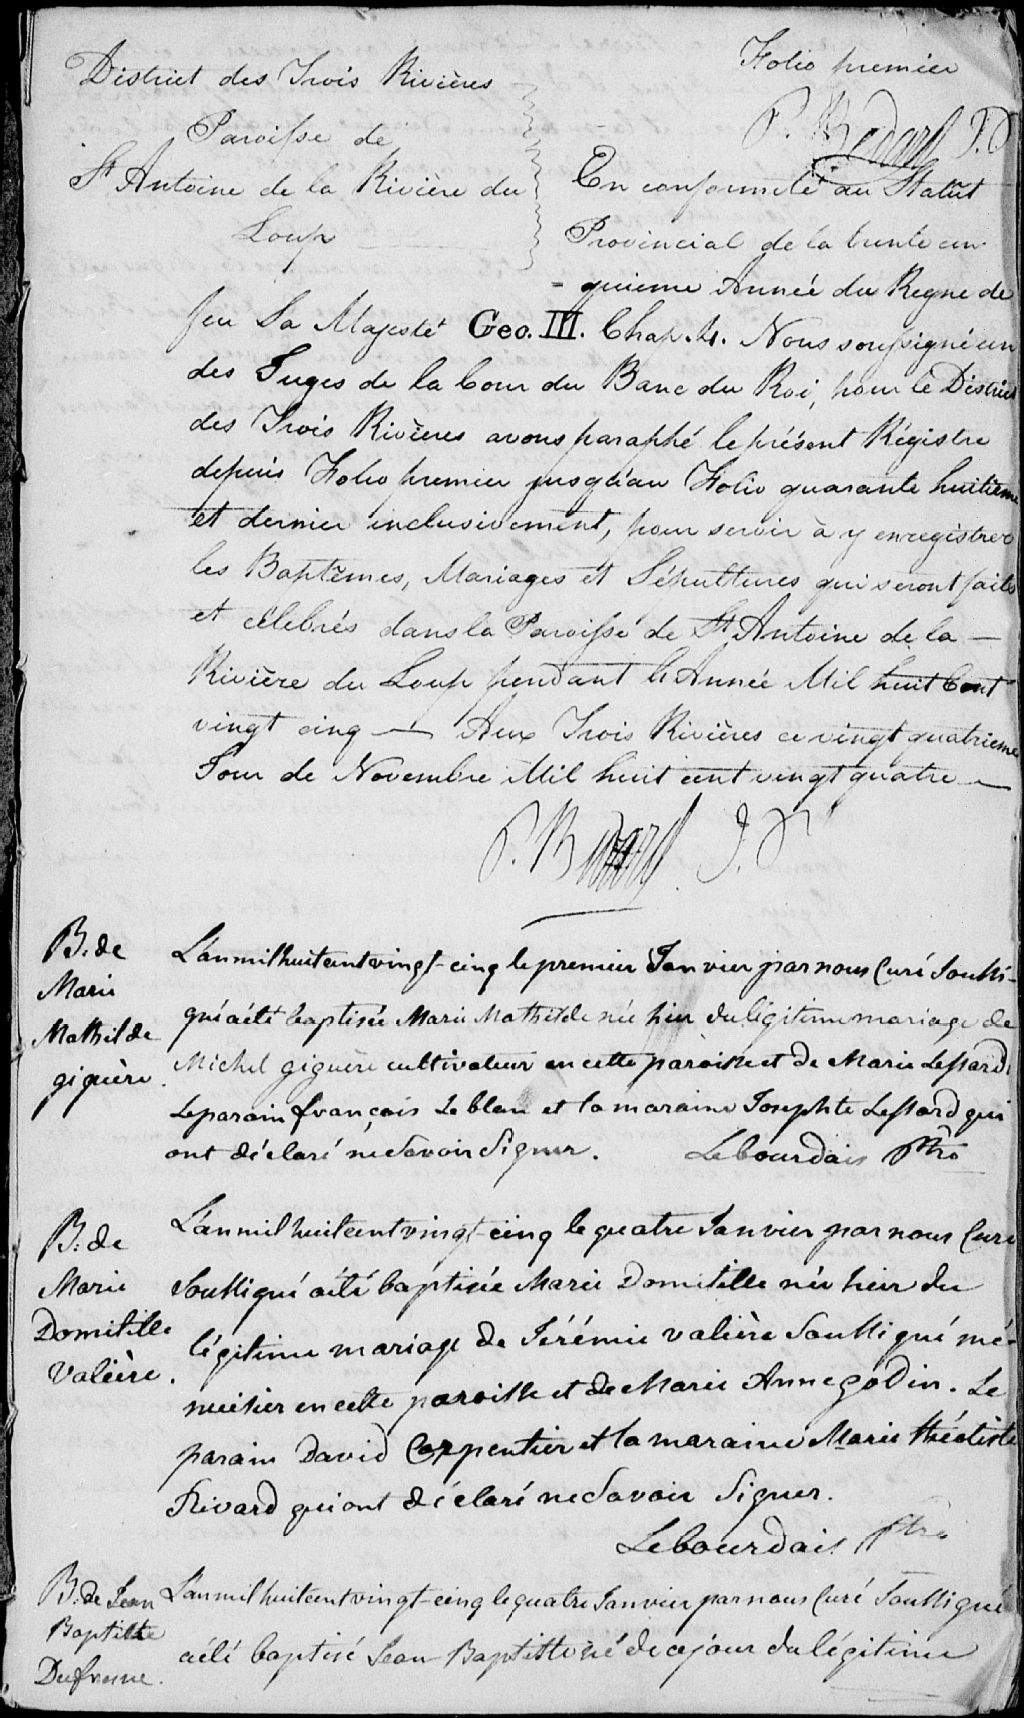 Folio premier
P. Bedard J.P.
District des Trois Rivières
Paroisse de
St Antoine de la Rivière du
Loup
En conformité au Statut
Provincial de la trente cin-
- quieme Année du Regne de
feu Sa Majesté Geo. III. Chap. 4. Nous soussigné un
des Juges de la Cour du Banc du Roi, pour le District
des Trois Rivières avons paraphé le présent Régistre
depuis Folio premier jusqu'au Folio quarante huitieme
et dernier inclusivement, pour servir à y enregistrer
les Baptêmes, Mariages et Sépultures qui seront faits
et célebrés dans la Paroisse de St Antoine de la —
Rivière du Loup pendant l'Année Mil huit Cent
vingt cinq — Aux Trois Rivières ce vingt quatrieme
Jour de Novembre Mil huit cent vingt quatre —
P. Bedard J.P.
B. de
Marie
Mathilde
giguère.
L'an mil huit cent vingt-cinq le premier Janvier par nous Curé Soussi-
gné a été baptisée Marie Mathilde née hier du légitime mariage de
Michel giguère cultivateur en cette paroisse et de Marie Lessard.
Le parain françois Leblanc et la maraine Josephte Lessard qui
ont déclaré ne Savoir Signer. Lebourdais Ptre
B. de
Marie
Domitille
Valière.
L'an mil huit cent vingt-cinq le quatre Janvier par nous Curé
Soussigné a été baptisée Marie Domitille née hier du
légitime mariage de Jérémie valière Soussigné me-
nuisier en cette paroisse et de Marie Anne godin. Le
parain David Carpentier et la maraine Marie théotiste
Rivard qui ont déclaré ne Savoir Signer.
Lebourdais Ptre
B. de Jean
Baptiste
Dufresne.
L'an mil huit cent vingt-cinq le quatre Janvier par nous Curé Soussigné
a été baptisé Jean-Baptiste né de ce jour du légitime